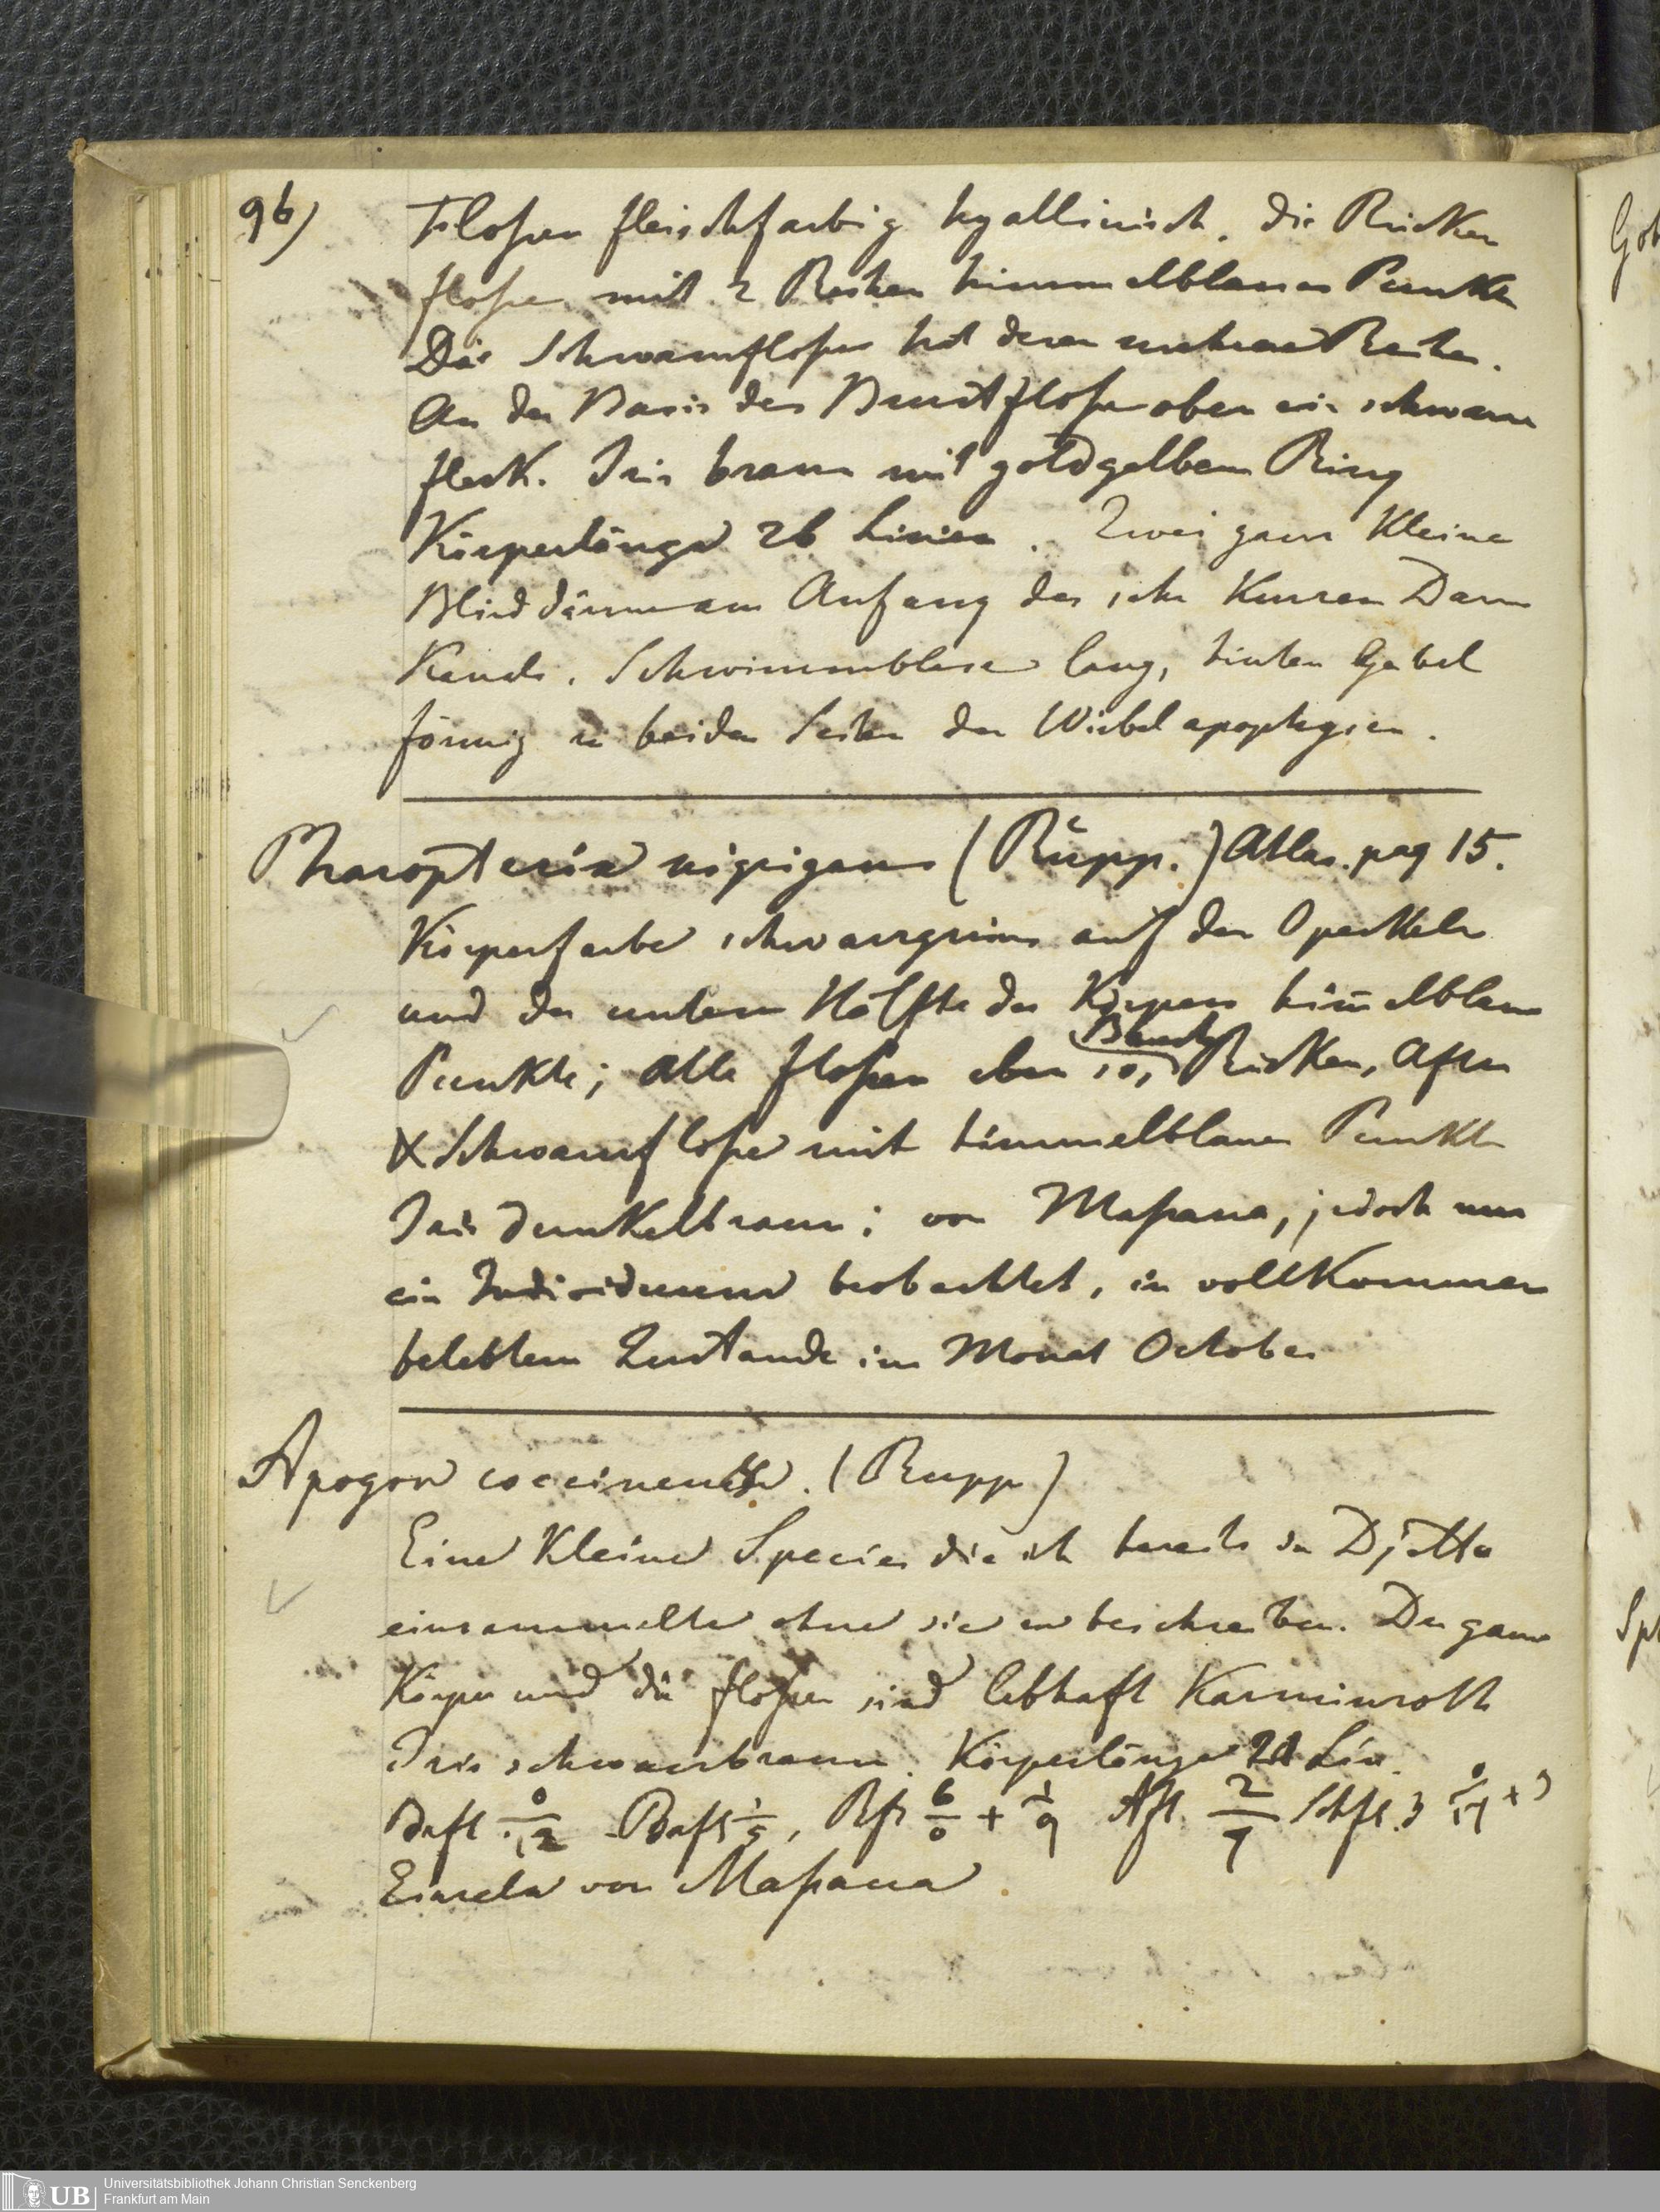 96)
Flossen fleischfarbig hyallinisch. die Rücken
flosse mit 2 Reihen himmelblauer Punkte
Die Schwanzflosse hat deren mehrere Reihen.
An der Basis der Brustflosse oben ein schwarzer
fleck. Iris braun mit goldgelbem Ring
Körperlänge 26 Linien. Zwei ganz Kleine
Blinddärme am Anfang des sehr Kurzen Darm
Kanals. Schwimmblase lang, hinten Gabel
förmig zu beiden Seiten der Wirbelapophysen.
Pharopteria nigrigans (Rüpp.) Atlas. pag 15.
Körperfarbe schwarzgrün auf den Operkeln
und der untern Hälfte des Körpers him̄elblaue
Punkte; Alle flossen eben so, Rücken, After
Bauch
& Schwanzflosse mit himmelblauen Punkten
Iris dunkelbraun; von Massaua, jedoch nur
ein Individuum beobachtet, in vollkommen
belebtem Zustande im Monat October
Apogon coccineus. (Rupp)
Eine Kleine Species die ich bereits in Djetta
einsammelte ohne sie zu beschreiben. Der ganze
Körper und die flossen sind lebhaft Karminroth
Iris schwarzbraun. Körperlänge 21 Lin.
Brfl. 0/12 Bafl 1/5, Rfl 6/0 + 1/9 Afl. 2/9 Schfl. 3 0/17 + 3
Einzeln von Massaua
Gob
Sph
UB Universitätsbibliothek Johann Christian Senckenberg
Frankfurt am Main